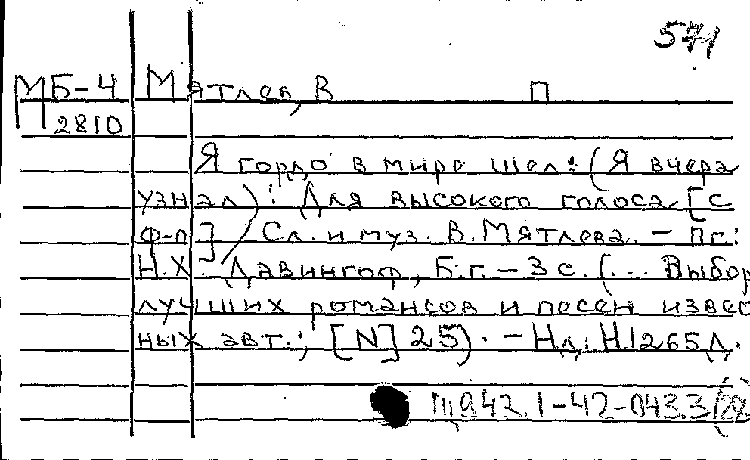 571
МБ-4 Мятлев, В П
М
2810
Я гордо в мире шел: (Я вчера
узнал): Для высокого голоса [с
ф-п] / Сл. и муз. В. Мятлева. - Пг.:
Н.Х. Давингоф, Б.г. - 3 с. (... Выбор
лучших романсов и песен извес
ных авт.; [N] 25). - Н.д. Н.1265 Д.
Щ942.1-42-043.3